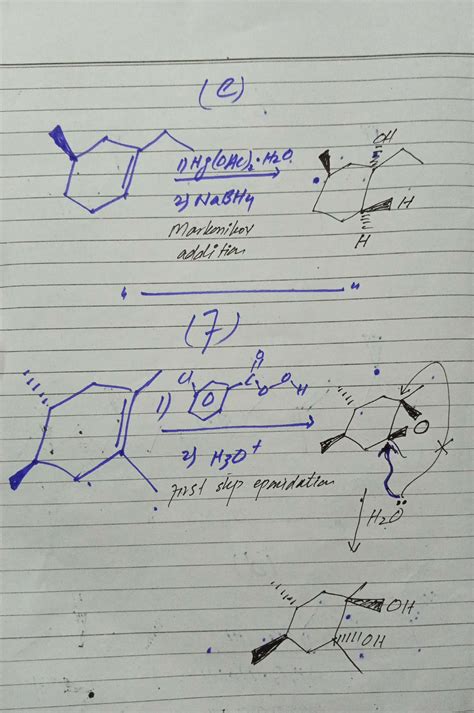 (C)
1) Hg(OAc)2·H2O
2) NaBH4
Markonikov
addition
OH
H
H
" "
(7)
Cl
O
C
O
O
H
1)
2) H3O+
first step epoxidation
O
H2O
OH
OH